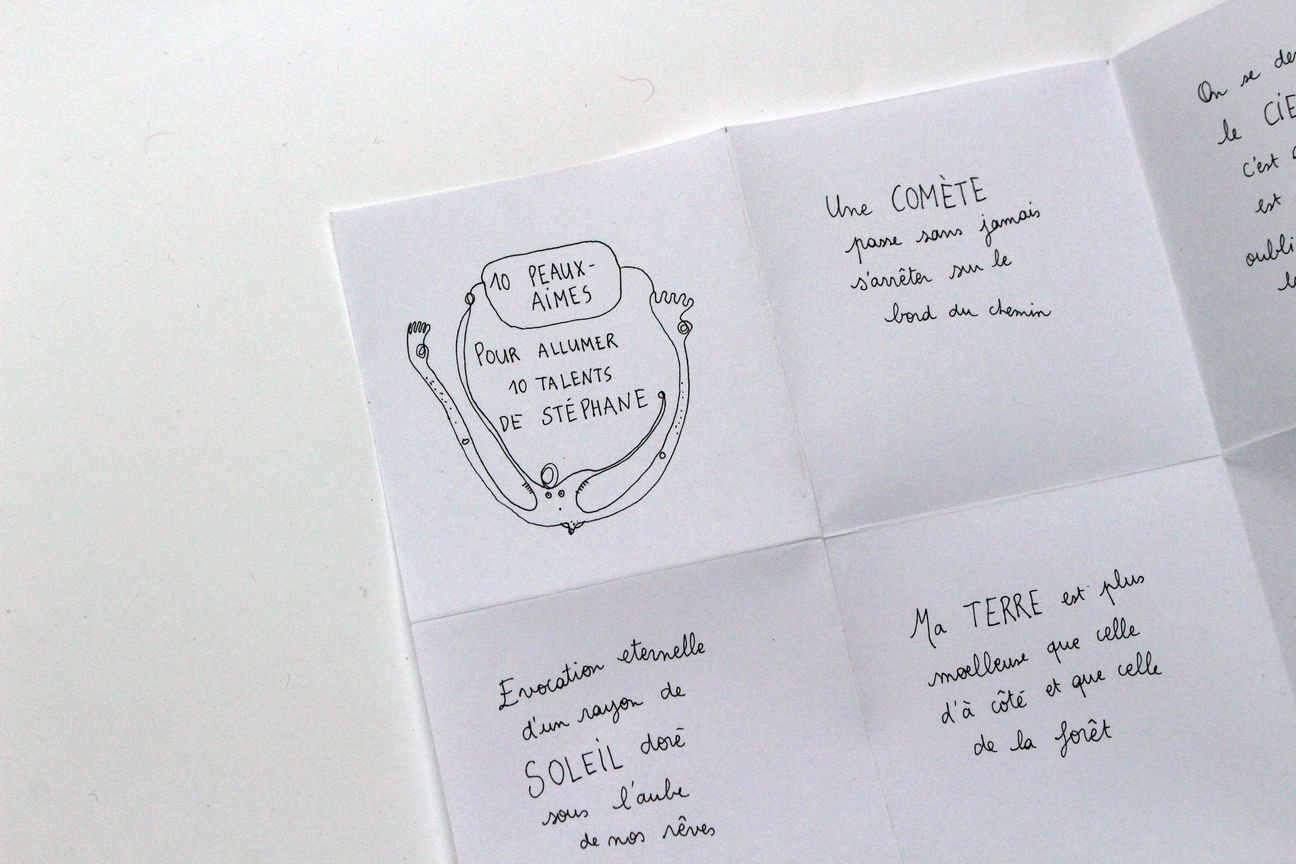 10 PEAUX-
AIMES
POUR ALLUMER
10 TALENTS
DE STÉPHANE
Une COMÈTE
passe sans jamais
s'arrêter sur le
bord du chemin
On se
le
c'est
est
Evocation eternelle
d'un rayon de
SOLEIL doré
sous l'aube
de nos rêves
Ma TERRE est plus
moelleuse que celle
d'à côté et que celle
de la forêt